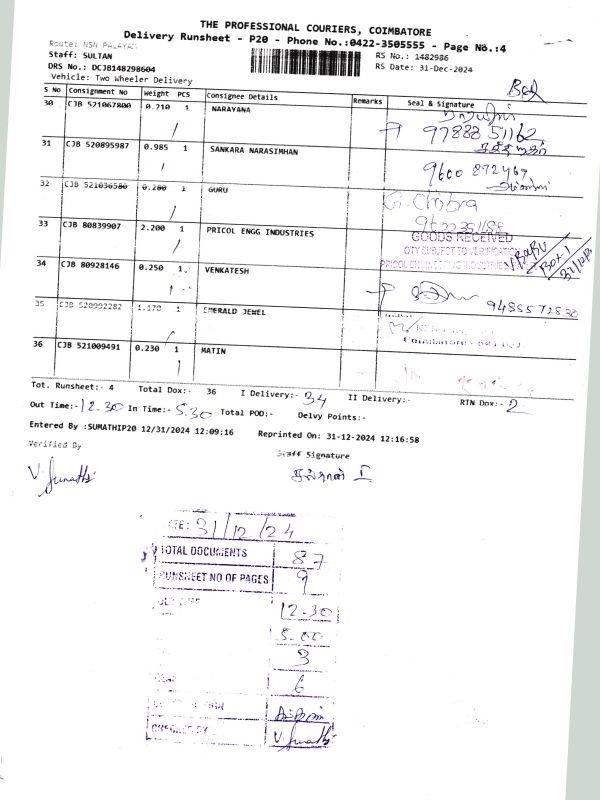 THE PROFESSIONAL COURIERS, COIMBATORE
Delivery Runsheet - P20 - Phone No.:0422-3505555 - Page No.:4
Route: NSN PALAYAM
Staff: SULTAN
RS No.: 1482986
DRS No.: DCJB148298604
RS Date: 31-Dec-2024
Vehicle: Two Wheeler Delivery
S No Consignment No Weight PCS Consignee Details Remarks Seal & Signature
30 CJB 521067800 0.710 1 NARAYANA
97888 51162
31 CJB 520895987 0.985 1 SANKARA NARASIMHAN
9600 872469
32 CJB 521036580 0.280 1 GURU
33 CJB 80839907 2.200 1 PRICOL ENGG INDUSTRIES
GOODS RECEIVED
QTY SUBJECT TO VERIFICATION
PRICOL ENGINEERING INDUSTRIES
V. Babu
Box-1
34 CJB 80928146 0.250 1 VENKATESH
9488572830
35 CJB 520992282 1.170 1 EMERALD JEWEL
36 CJB 521009491 0.230 1 MATIN
Tot. Runsheet:- 4 Total Dox:- 36 I Delivery:- 34 II Delivery:- RTN Dox:- 2
Out Time:- 12.30 In Time:- 5.30 Total POD:- Delvy Points:-
Entered By :SUMATHIP20 12/31/2024 12:09:16 Reprinted On: 31-12-2024 12:16:58
Verified By Staff Signature
V. Sumathi
31/12/24
TOTAL DOCUMENTS 87
RUNSHEET NO OF PAGES 9
12.30
5.00
3
6
CHECKED BY V. Sumathi